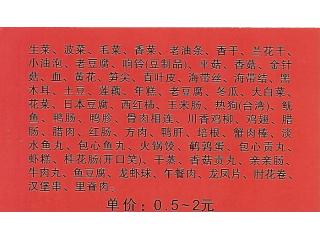 生菜、波菜、毛菜、香菜、老油条、香干、兰花干、
小油泡、老豆腐、响铃(豆制品)、平菇、香菇、金针
菇、血、黄花、笋尖、百叶皮、海带丝、海带结、黑
木耳、土豆、莲藕、年糕、老豆腐、冬瓜、大白菜、
花菜、日本豆腐、西红柿、玉米肠、热狗(台湾)、鱿
鱼、鸭肠、鸭胗、骨肉相连、川香鸡柳、鸡翅、腊
肠、腊肉、红肠、方肉、鸭肝、培根、蟹肉棒、淡
水鱼丸、包心鱼丸、火锅饺、鹌鹑蛋、包心贡丸、
虾糕、桂花肠(开口笑)、干蒸、香菇贡丸、亲亲肠、
牛肉丸、鱼豆腐、龙虾球、午餐肉、龙凤片、肘花卷、
汉堡串、里脊肉。
单价: 0.5~2元